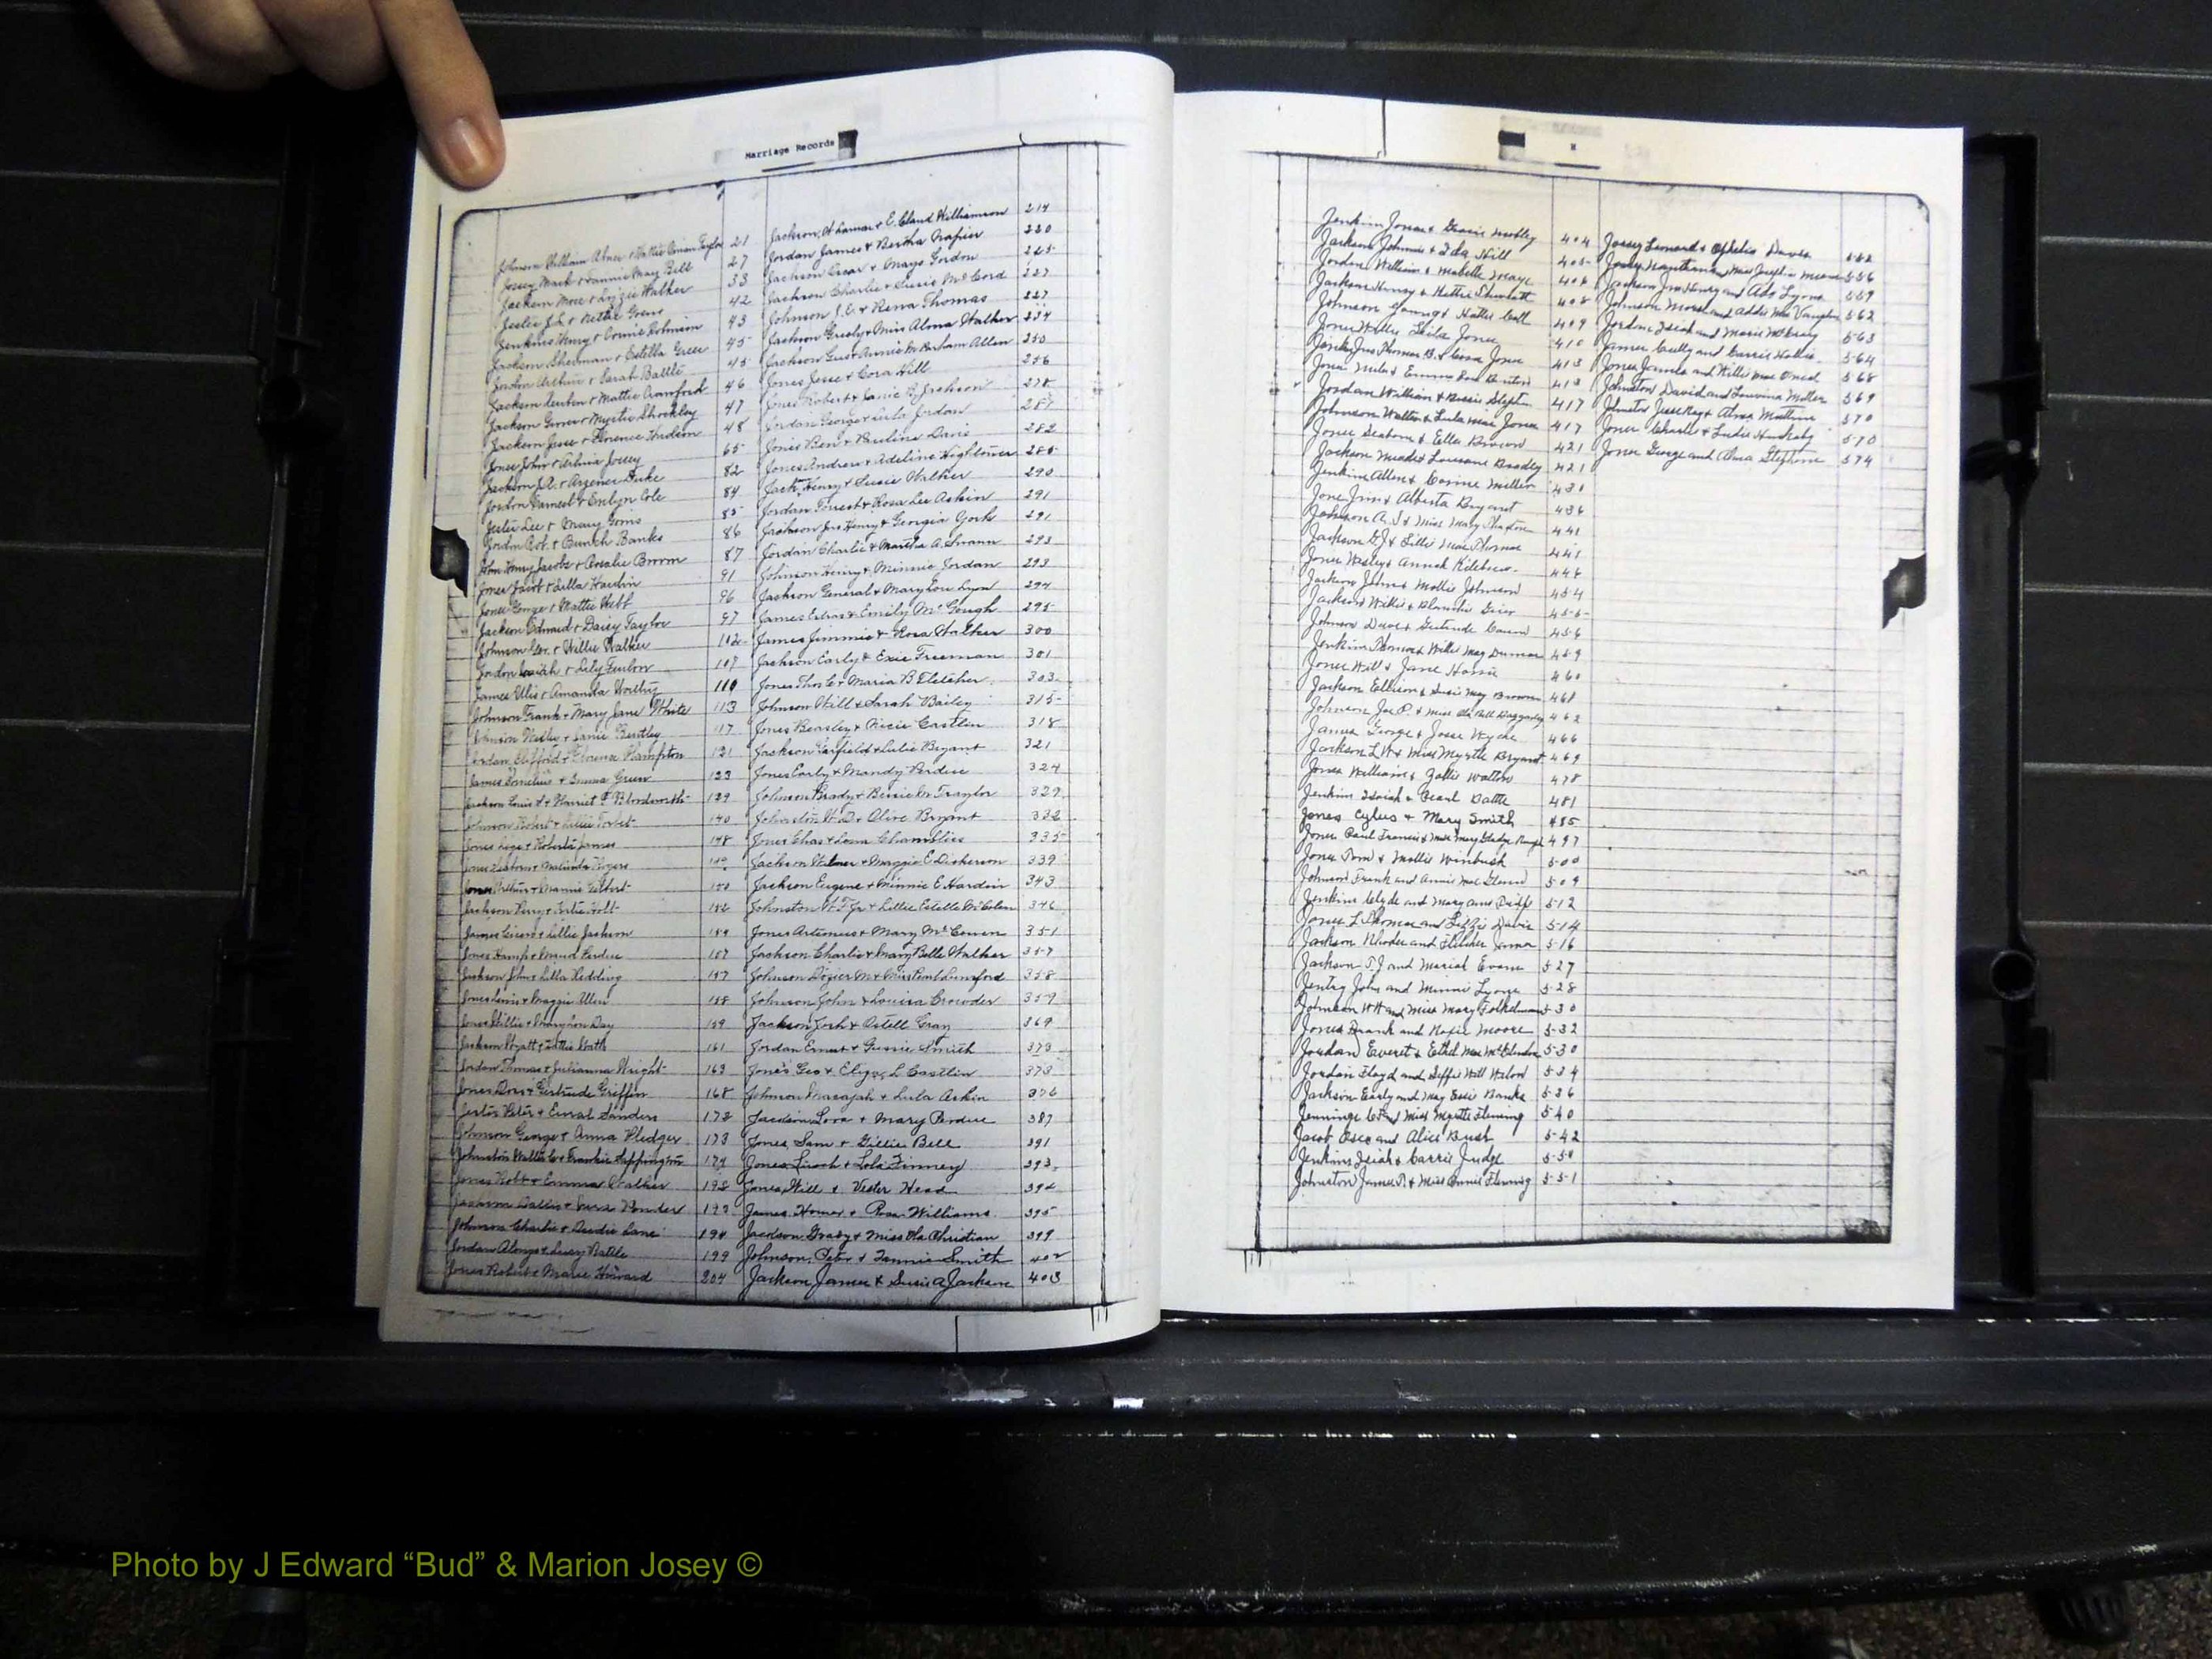 Marriage Records
Johnson William Abner & Hattie Taylor 21
Josey Mack & Fannie May Bell 27
Jackson Mose & Lizzie Walker 33
Jester J.L. & Nettie Goens 42
Jenkins Henry & Connie Robinson 43
Jackson Sherman & Estella Greer 45
Jordon Arthur & Sarah Battle 45
Jackson Reuben & Mattie Crawford 46
Jackson Grover & Myrtie Shockley 47
Jackson Jesse & Florence 48
Jones John & Josey 65
Jackson J.A. & Duke 82
Jordon Earnest & Evelyn Cole 84
Jester Lee & Mary Goins 85
Jordon Rob. & Bunch Banks 86
John Henry Jacobs & Rosalie Broom 87
Jones Jacob & Lella Hardin 91
Jones George & Mattie Webb 96
Jackson Edward & Daisy Taylor 97
Johnson Geo. & Willie Walker
Jordon Isaiah & Lily 107
James Ellis & Amanda Worthy 110
Johnson Frank & Mary Jane White 113
Johnson Wesley & Janie Bentley 117
Jordan Clifford & Florence Hampton 121
James Cornelius & Emma Green 123
Jackson Louis & Harriet Bloodworth 129
Johnson Robert & Lillie 140
Jones Lige & Roberta James 148
Jones & Malinda Rogers
Jones Arthur & Mamie Gilbert 150
Jackson Perry & Holt 152
James Cicero & Lillie Jackson
Jones Hamp & Maud Perdue 157
Jackson John & Lella Redding 157
Jones Lewis & Maggie Allen 158
Jones Willie & Mary Lou Day 159
Jackson Wyatt & Watts 161
Jordan Thomas & Julianna Wright 163
Jones Dors & Gertrude Griffin 168
Jester Peter & Sanders 172
Johnson George & Anna Pledger 173
Johnston & Frankie Leppington 174
Jones Robt & Emma Walker 192
Jackson Dallis & Ponder 193
Johnson Charlie & Lane 194
Jordan Alonzo & Lucy Battle 199
Jones Robert & Marie Howard 204
Jackson, H Lamar & E. Claud Williamson 214
Jordan James & Bertha Napier 220
Jackson Oscar & Mayo Gordon 225
Jackson Charlie & Susie McCord 227
Johnson J.E. & Rena Thomas 227
Jackson Greely & Miss Alma Walker 234
Jackson Gus & Annie M Parham Allen 250
Jones Jesse & Cora Hill 256
Jones Robert & Janie B Jackson 278
Jordan George & Lula Jordan 281
Jones Ben & Pauline Davis 282
Jones Andrew & Adeline Hightower 285
Jackson, Henry & Susie Walker 290
Jordan Forrest & Rosa Lee Askin 291
Jackson Jno Henry & Georgia York 291
Jordan Charlie & Martha A. Swann 293
Johnson Henry & Minnie Jordan 293
Jackson General & Mary Lou Lyon 294
James Estus & Emily McGough 295
James Jimmie & Rosa Walker 300
Jackson Early & Exie Freeman 301
Jones Thos. C & Maria B. Fletcher 303
Johnson Will & Sarah Bailey 315
Jones Beasley & Ricie Castlin 318
Jackson Garfield & Lulie Bryant 321
Jones Early & Mandy Perdue 324
Johnson Brady & Bessie M Traylor 329
Johnston W.D. & Olive Bryant 332
Jones Chas & Lena Chambliss 335
Jackson Wilmer & Maggie E. Dickerson 339
Jackson Eugene & Minnie E Hardin 343
Johnston W.F. Jr & Lillie Estelle McColum 346
Jones Artemus & Mary McCowen 351
Jackson Charlie & Mary Belle Walker 357
Johnson Dozier M & Miss Pearl Lunsford 358
Johnson John & Louisa Crowder 359
Jackson Josh & Ostell Gray 369
Jordan Ernest & Gussie Smith 373
Jones Geo & Eliza L Castlin 373
Johnson & Lula Askin 376
Jackson Lora & Mary Perdue 387
Jones Sam & Gillie Bell 391
Jones Enoch & Lola Finney 393
Jones, Will & Vester Head 394
James Homer & Rosa Williams 395
Jackson Grady & Miss Ola Christian 399
Johnson, Peter & Fannie Smith 402
Jackson James & Susie A Jackson 403
Jenkins Jonas & Gracie Mobley 404
Jackson Johnnie & Ida Hill 405
Jordan William & Mabelle Maye 408
Jackson Henry & Hattie 408
Johnson Young & Hattie Call 409
Jones Wallie Jones 410
Jenks Jno Thomas B. & Cora Jones 413
Jones Miles & Emma 413
Jordan William & Bessie 417
Johnson Walter & Lula Mae Jones 417
Jones Seaborn & Ella Brown 421
Jackson Meade & Louisana Bradley 421
Jenkins Allen & Corine Miller 430
Jones Jim & Alberta Bryant 436
Johnson A.J. & Miss Mary Thaxton 441
Jackson G.J. & Lillie Mae Thomas 441
Jones Wesley & Annah Kilchew 446
Jackson John & Mollie Johnson 454
Jackson Willie & Blanche Grier 455
Johnson Dave & Gertrude 456
Jenkins Thomas & Willie May Dumas 459
Jones Will & Jane Harris 460
Jackson Ellison & Susie May Brown 461
Johnson Joe P. & Miss Ola Bell Daggarty 462
James George & Josse Wyche 466
Jackson L.W. & Miss Myrtle Bryant 469
Jones William & Zollie Walton 478
Jenkins Isaiah & Pearl Battle 481
Jones Cylus & Mary Smith 485
Jones Paul Francis & Miss Mary Gladys 497
Jones Tom & Mollie Winbush 500
Johnson Frank and Annie Mae Glenn 509
Jenkins Clyde and Mary Ann 512
Jones L Thomas and Lizzie Davis 514
Jackson Rhodes and Fletcher 516
Jackson T.J and Mariah Evans 527
Jentry John and Minnie Lyons 528
Johnson W H and Miss Mary 530
Jones Frank and Roxie Moore 532
Jordan Everet & Ethel Mae McClendon 530
Jordan Floyd and Will 534
Jackson Early and May Essie Banks 536
Jennings and Miss Myrtle Fleming 540
Jacob Osee and Alice Bush 542
Jenkins Isiah & Carrie Judge 550
Johnston James P. & Miss Annie Fleming 551
Josey Leonard & Ophelia Davis 552
Josey and Miss Josephine 556
Jackson Jno Henry and Ada Lyons 559
Johnson Moses and Addie Mae Vaughn 562
Jordan Isiah and Marie 563
James Cully and Carrie Hollis 564
Jones James and Willie Mae 568
Johnston David and Louvina Miller 569
Johnston Jesse Ray & Alma Matthews 570
Jones Charlie & Ludie 570
Jones George and Alma Stephens 574
Photo by J Edward “Bud” & Marion Josey ©